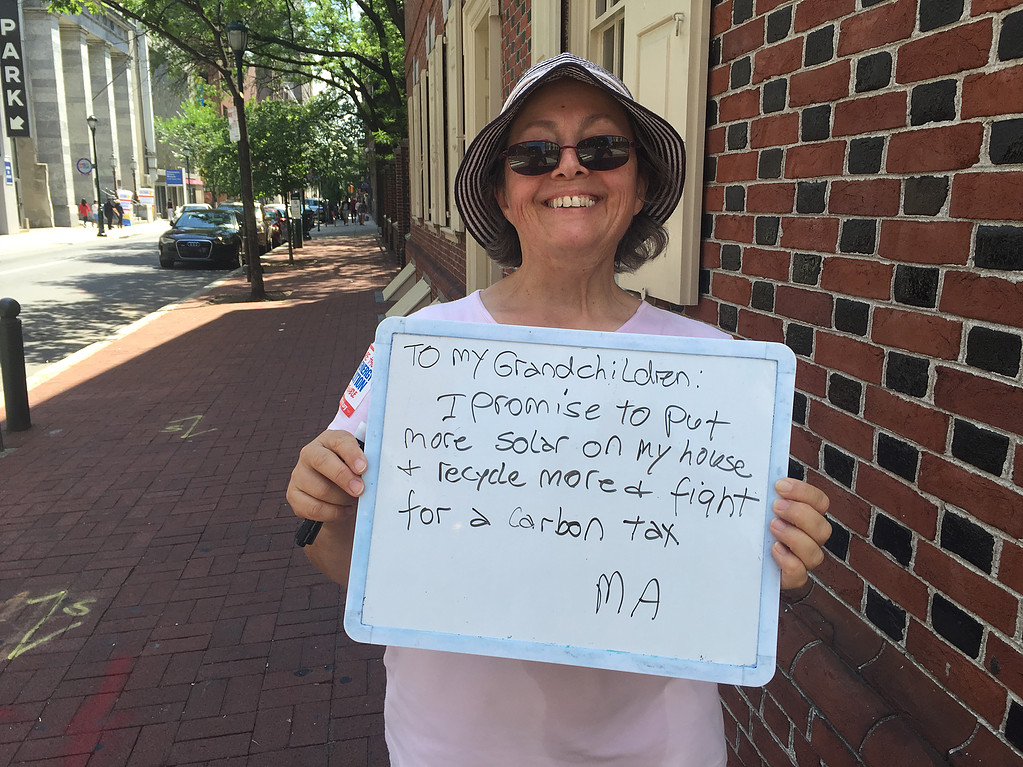 PARK
To my Grandchildren:
I promise to put
more solar on my house
+ recycle more + fight
for a carbon tax
MA